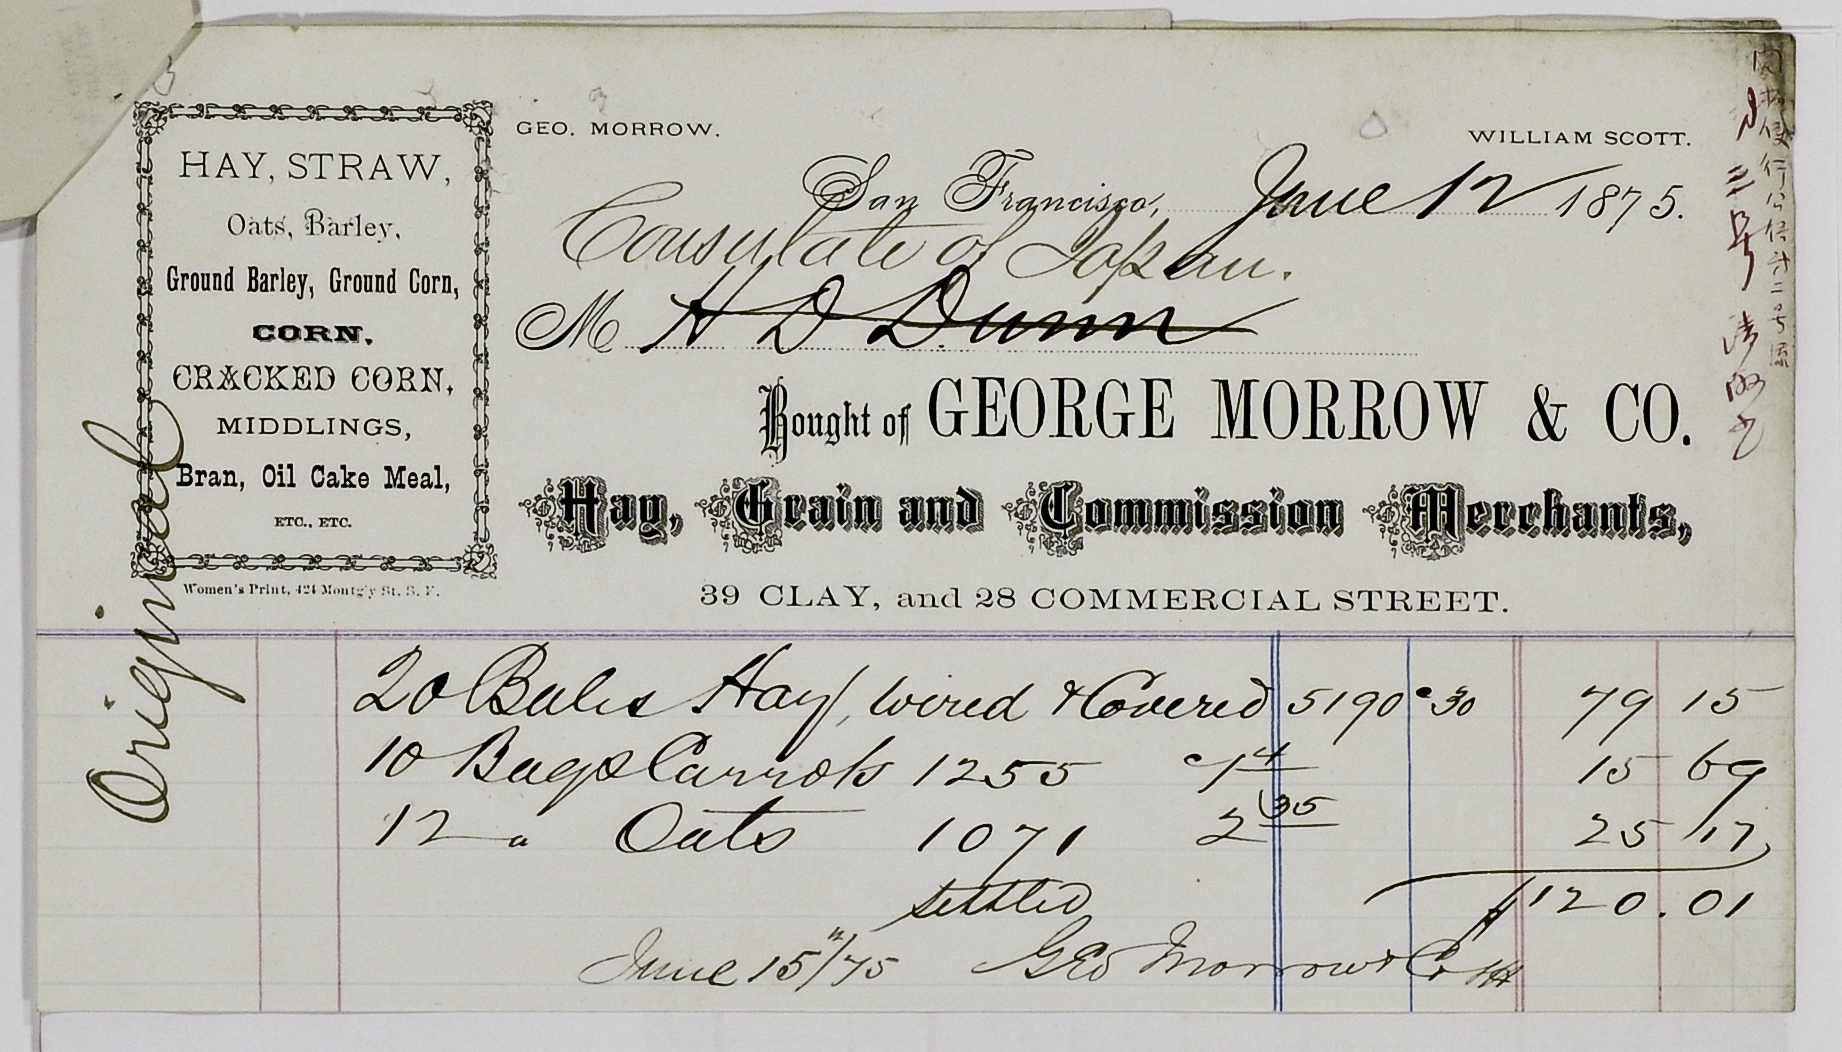 HAY, STRAW,
Oats, Barley,
Ground Barley, Ground Corn,
CORN.
CRACKED CORN,
MIDDLINGS,
Bran, Oil Cake Meal,
ETC., ETC.
Women's Print, 424 Montg'y St. S. F.
Original
GEO. MORROW.
WILLIAM SCOTT.
San Francisco, June 12 1875.
Consulate of Japan.
M H D Dunn
Bought of GEORGE MORROW & CO.
Hay, Grain and Commission Merchants,
39 CLAY, and 28 COMMERCIAL STREET.
20 Bales Hay, wired & Covered 5190 30 79 15
10 Bags Carrots 1255 15 69
12 " Oats 1071 2 35 25 17
settled $120.01
June 15"/75 Geo Morrow & Co
行公信
三号